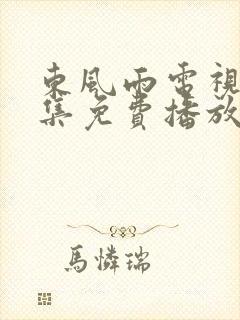 東風雨電視
集免費播放
馬憐瑞